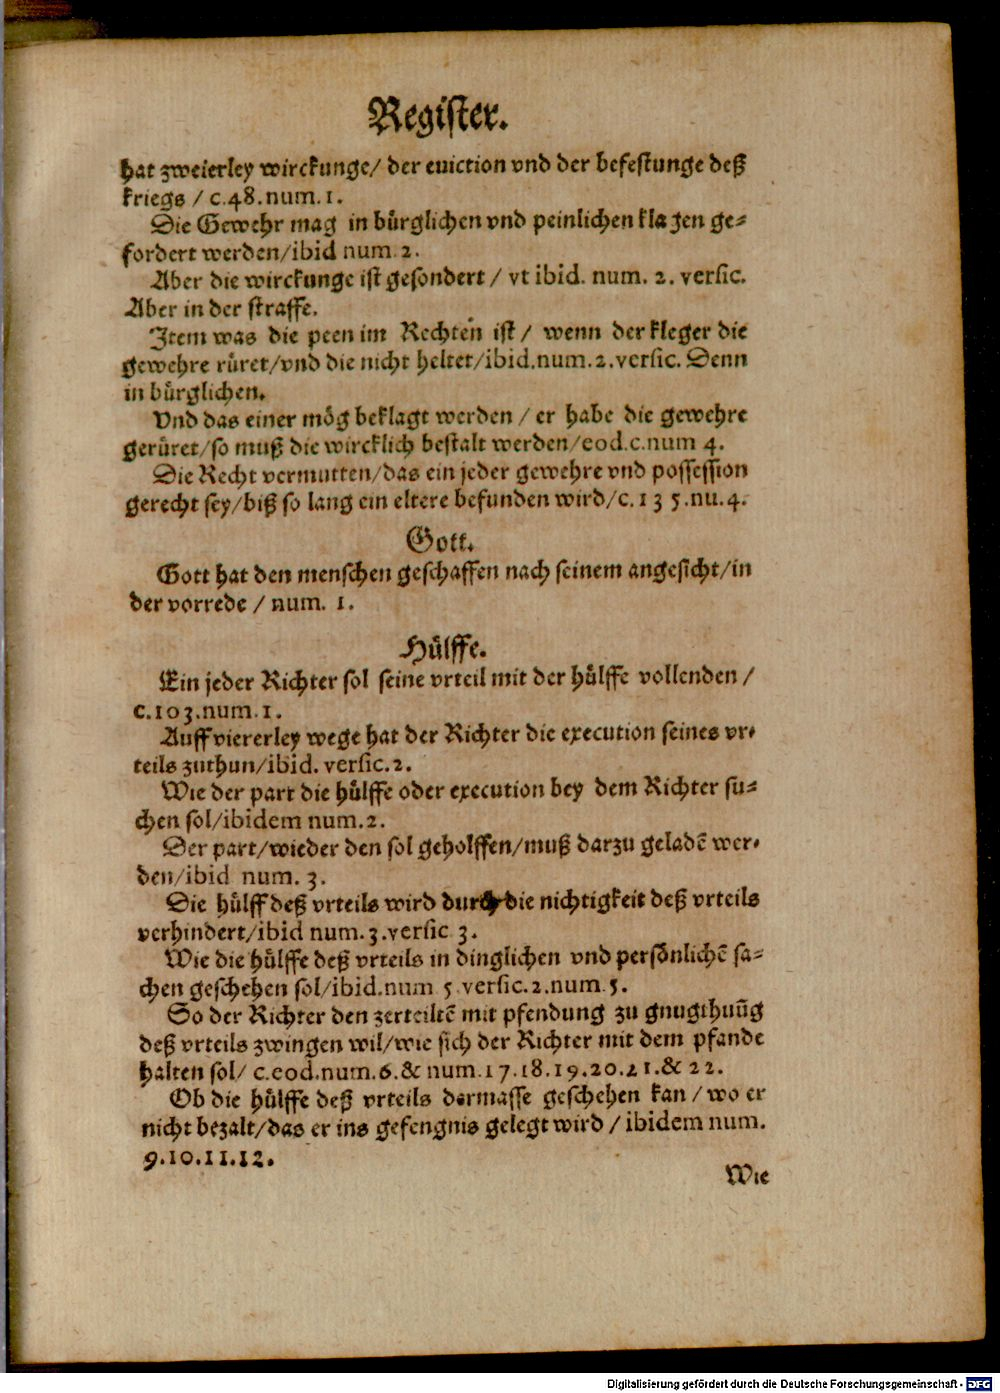 Register.
hat zweierley wirckunge/ der euiction vnd der befestunge deß
kriegs / c.48.num.1.
Die Gewehr mag in bürglichen vnd peinlichen klagen ge-
fordert werden/ibid num.2.
Aber die wirckunge ist gesondert / vt ibid. num. 2. versic.
Aber in der straffe.
Item was die peen im Rechten ist / wenn der kleger die
gewehre rüret/vnd die nicht heltet/ibid.num.2.versic. Denn
in bürglichen.
Vnd das einer mög beklagt werden / er habe die gewehre
gerüret/so muß die wircklich bestalt werden/eod.c.num 4.
Die Recht vermutten/das ein jeder gewehre vnd possession
gerecht sey/biß so lang ein eltere befunden wird/c.135.nu.4.
Gott.
Gott hat den menschen geschaffen nach seinem angesicht/in
der vorrede / num. 1.
Hülffe.
Ein jeder Richter sol seine vrteil mit der hülffe vollenden /
c.103.num.1.
Auff viererley wege hat der Richter die execution seines vr-
teils zuthun/ibid. versic.2.
Wie der part die hülffe oder execution bey dem Richter su-
chen sol/ibidem num.2.
Der part/wieder den sol geholffen/muß darzu geladē wer-
den/ibid num. 3.
Die hülff deß vrteils wird durch die nichtigkeit deß vrteils
verhindert/ibid num.3.versic 3.
Wie die hülffe deß vrteils in dinglichen vnd persönlichē sa-
chen geschehen sol/ibid.num 5 versic.2.num 5.
So der Richter den zerteiltē mit pfendung zu gnugthuūg
deß vrteils zwingen wil/wie sich der Richter mit dem pfande
halten sol/ c.eod.num.6.& num.17.18.19.20.21.& 22.
Ob die hülffe deß vrteils dermasse geschehen kan / wo er
nicht bezalt/das er ins gefengnis gelegt wird / ibidem num.
9.10.11.12.
Wie
Digitalisierung gefördert durch die Deutsche Forschungsgemeinschaft - DFG